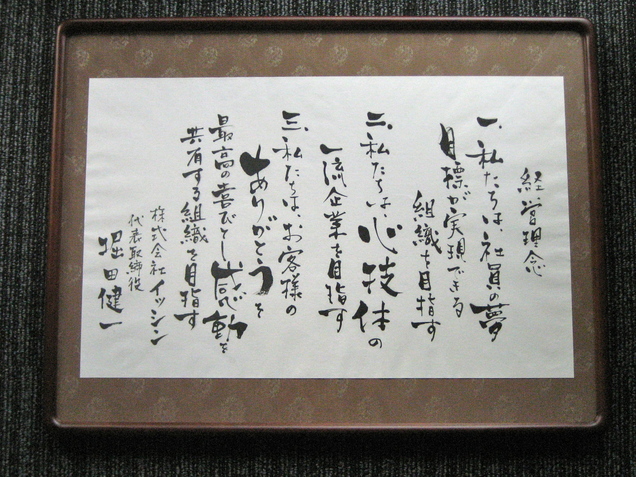 経営理念
一、私たちは、社員の夢
目標が実現できる
組織を目指す
二、私たちは、心技体の
一流企業を目指す
三、私たちは、お客様の
ありがとうを
最高の喜びとし感動を
共有する組織を目指す
株式会社イッシン
代表取締役
堀田健一